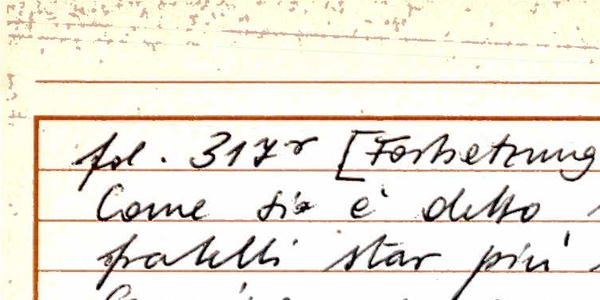 fol. 317r [Fortsetzung
Come si è detto
fratelli star più